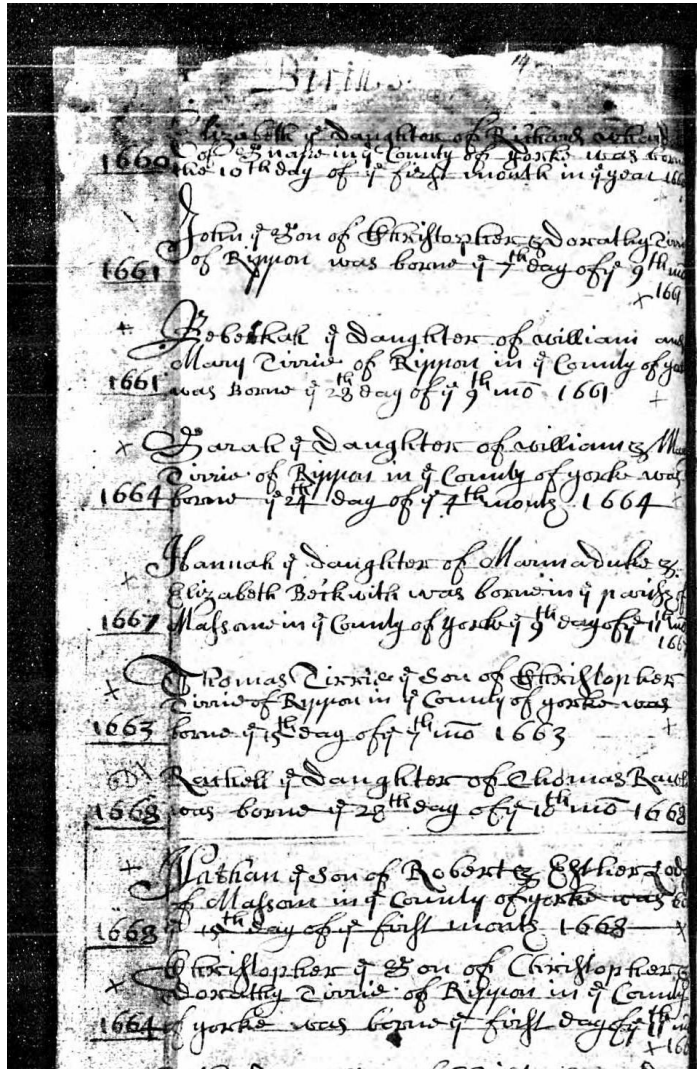 14
Births
Elizabeth ye daughter of Richard
1660 of Snape in ye County of Yorke was borne
the 10th day of ye first month in ye year 1660
John ye Son of Christopher & Dorathy Tirrie
1661 of Rippon was borne ye 7th day of ye 9th mo
1661
Rebeckah ye daughter of william and
Mary Tirrie of Rippon in ye County of yo
1661 was Borne ye 28th day of ye 9th mo 1661
Sarah ye daughter of william & Mary
Tirrie of Rippon in ye County of yorke was
1664 borne ye 24th day of ye 4th month 1664
Hannah ye daughter of Marmaduke &
Elizabeth Beckwith was borne in ye parish of
1667 Massome in ye County of yorke ye 9th day of ye 11th mo
1667
Thomas Tirrie ye Son of Christopher
Tirrie of Rippon in ye County of yorke was
1663 borne ye 15th day of ye 7th mo 1663
Rachell ye daughter of Thomas
1668 was borne ye 28th day of ye 10th mo 1668
Nathan ye Son of Robert & Esther
of Massom in ye County of yorke was bo
1668 ye 15th day of ye first month 1668
Christopher ye Son of Christopher &
Dorathy Tirrie of Rippon in ye County
1664 of yorke was borne ye first day of ye 11th mo